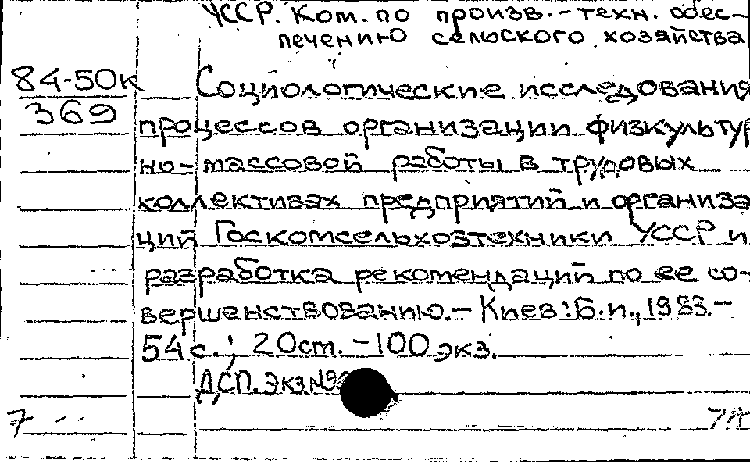 УССР. Ком. по произв.-техн. обес-
печению сельского хозяйства
84-50к
369
Социологические исследования
процессов организации физкультур
но-массовой работы в трудовых
коллективах предприятий и организа
ций Госкомсельхозтехники УССР и
разработка рекомендаций по ее со-
вершенствованию.- Киев: Б.и., 1983.-
54 с.; 20 см. - 100 экз.
ДСП. Экз. №
7